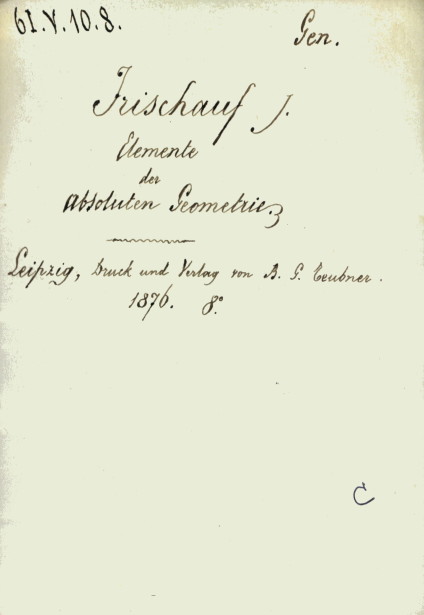 61.V.10.8.
Gen.
Frischauf J.
Elemente
der
absoluten Geometrie.
Leipzig, Druck und Verlag von B. G. Teubner.
1876. 8°
C